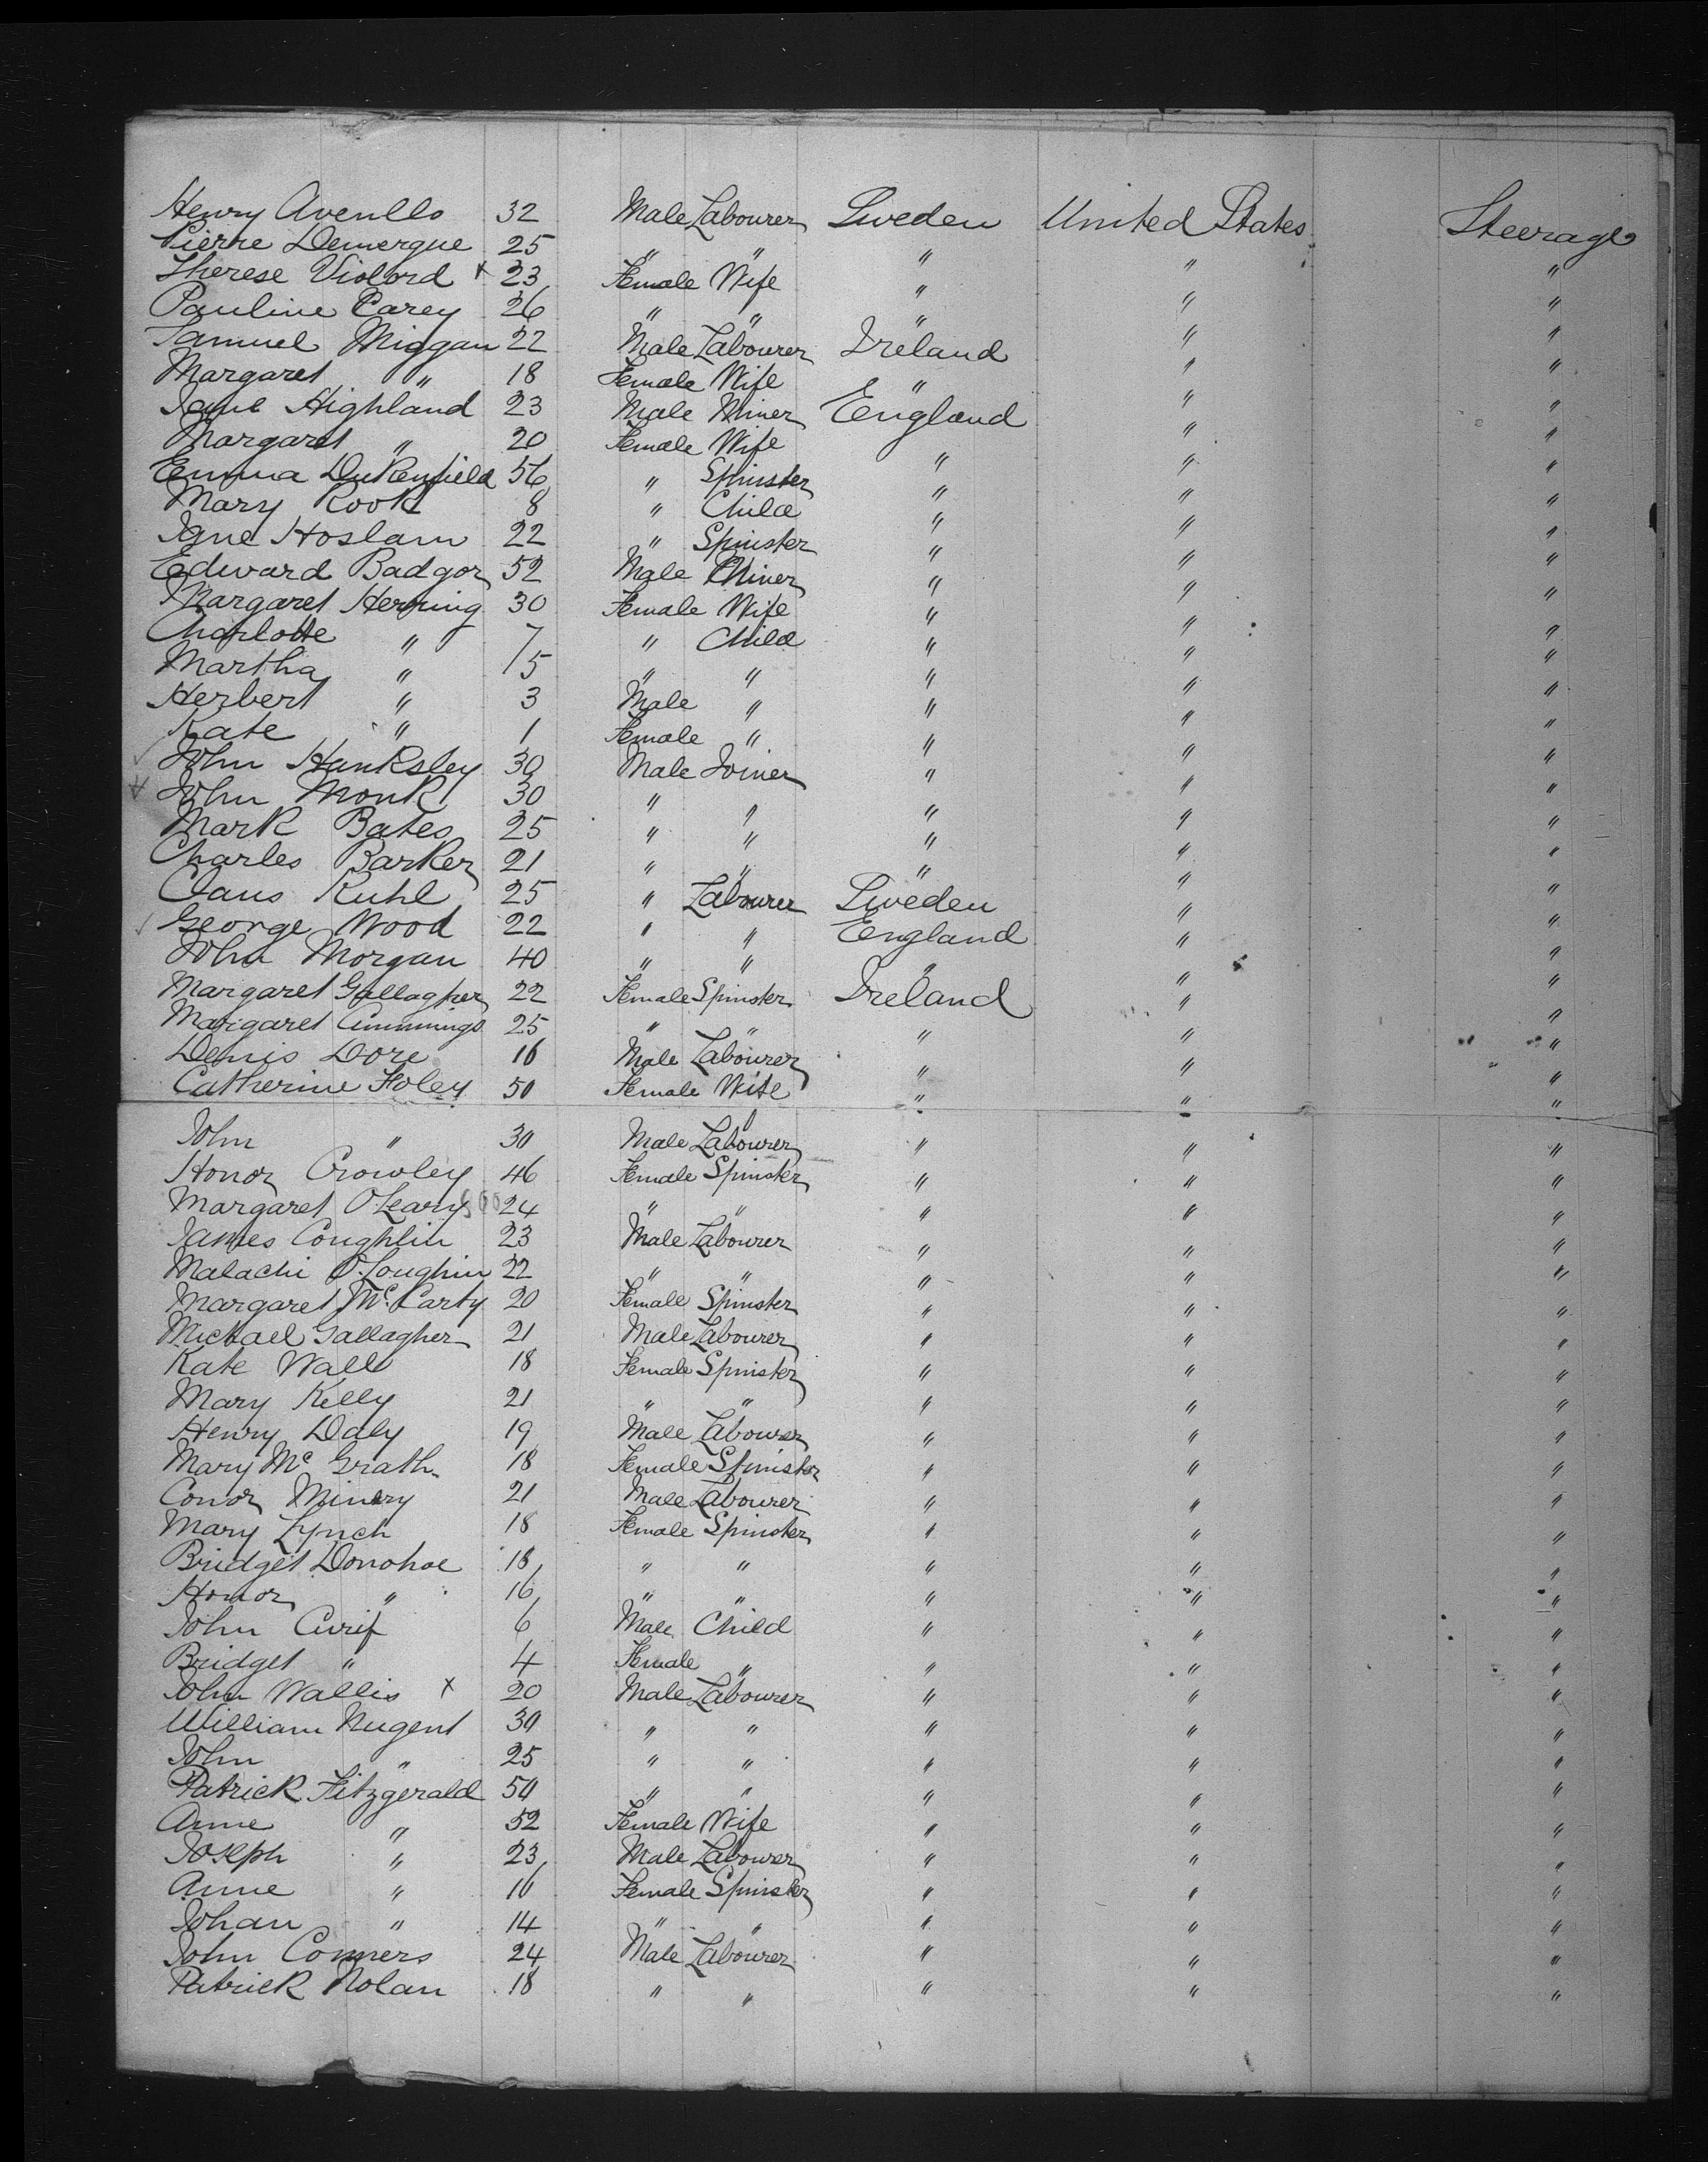 Henry Avenllo 32 Male Labourer Sweden United States Steerage
Pierre Demergue 25 " " " " "
Therese Violord x 23 Female Wife " " "
Pauline Carey 26 " " " " "
Samuel Miggan 22 Male Labourer Ireland " "
Margaret " 18 Female Wife " " "
Highland 23 Male Miner England " "
Margaret " 20 Female Wife " " "
Emma Dukenfield 56 " Spinster " " "
Mary Rook 8 " Child " " "
Jane Hoslam 22 " Spinster " " "
Edward Badgor 52 Male Miner " " "
Margaret Herring 30 Female Wife " " "
Charlotte " 7 " Child " " "
Martha " 5 " " " " "
Herbert " 3 Male " " " "
Kate " 1 Female " " " "
John Hanksley 30 Male Joiner " " "
John Monk 30 " " " " "
Mark Bates 25 " " " " "
Charles Barker 21 " " " " "
Claus Kuhl 25 " Labourer Sweden " "
George Wood 22 " " England " "
John Morgan 40 " " " " "
Margaret Gallagher 22 Female Spinster Ireland " "
Margaret Cummings 25 " " " " "
Denis Dore 16 Male Labourer " " "
Catherine Foley 50 Female Wife " " "
John " 30 Male Labourer " " "
Honor Crowley 46 Female Spinster " " "
Margaret O'Leary 24 " " " " "
James Coughlin 23 Male Labourer " " "
Malachi O'Loughin 22 " " " " "
Margaret McCarty 20 Female Spinster " " "
Michael Gallagher 21 Male Labourer " " "
Kate Wall 18 Female Spinster " " "
Mary Kelly 21 " " " " "
Henry Daly 19 Male Labourer " " "
Mary Mc Grath 18 Female Spinster " " "
Conor Minery 21 Male Labourer " " "
Mary Lynch 18 Female Spinster " " "
Bridget Donohoe 18 " " " " "
Honor " 16 " " " " "
John 6 Male Child " " "
Bridget " 4 Female " " " "
John Wallis x 20 Male Labourer " " "
William Nugent 30 " " " " "
John " 25 " " " " "
Patrick Fitzgerald 50 " " " " "
Anne " 52 Female Wife " " "
Joseph " 23 Male Labourer " " "
Anne " 16 Female Spinster " " "
Johan " 14 " " " " "
John Conners 24 Male Labourer " " "
Patrick Nolan 18 " " " " "